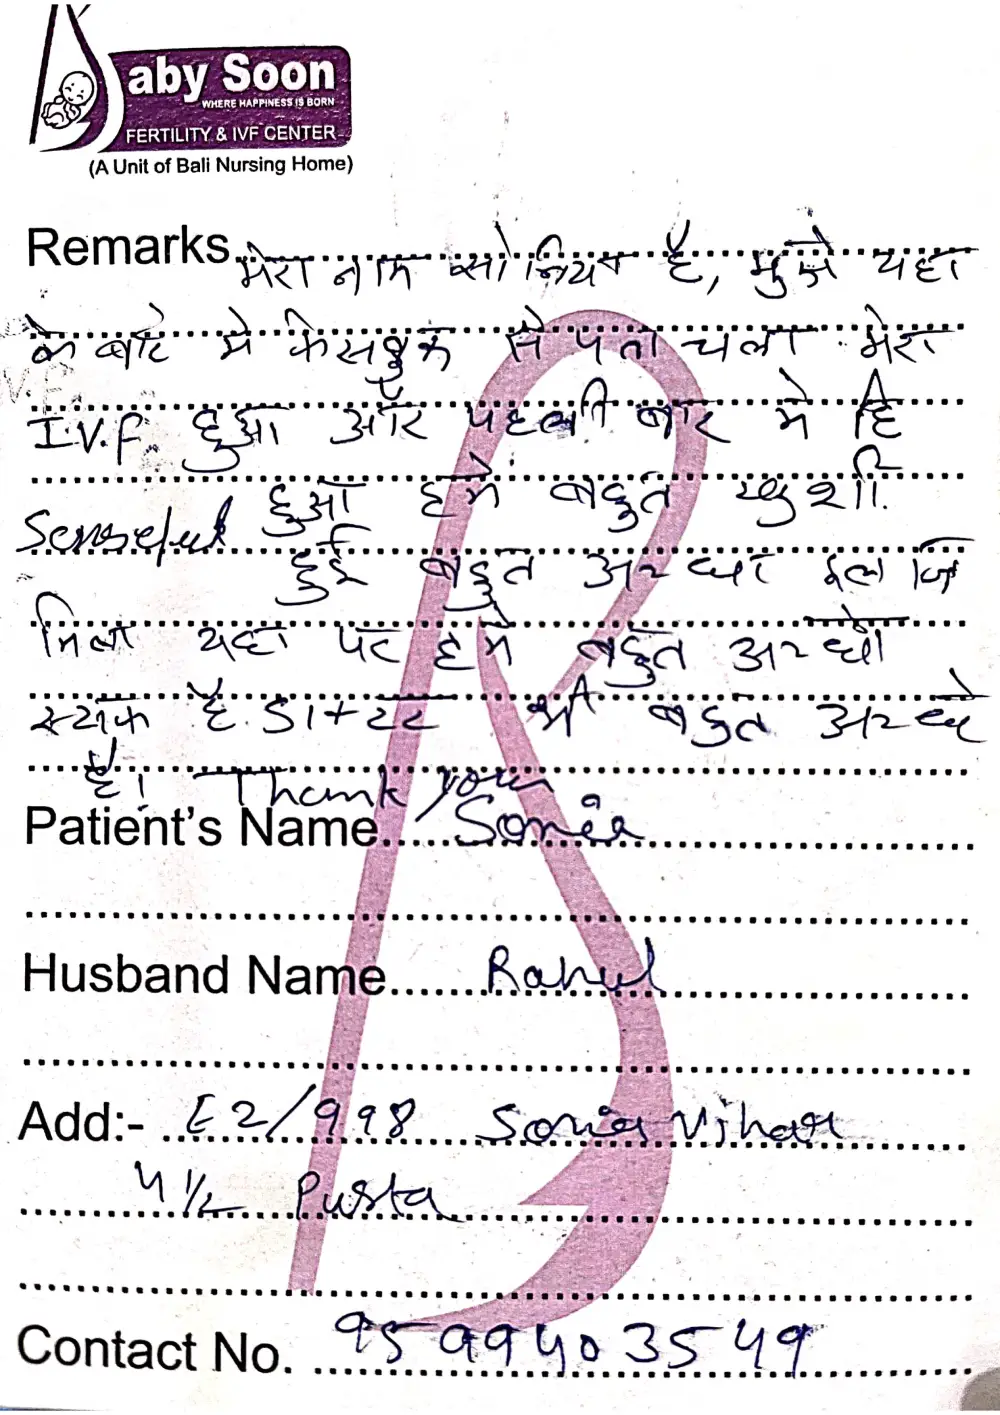 Baby Soon
WHERE HAPPINESS IS BORN
FERTILITY & IVF CENTER
(A Unit of Bali Nursing Home)
Remarks मेरा नाम सोनिया है, मुजे यहा
के बारे मे फेसबुक से पता चला मेरा
I.V.F. हुआ और पहली बार मे हि
हुआ हमे बहुत खुशी
हुई बहुत अच्छा इलाज
मिला यहा पर हमे बहुत अच्छा
स्टाफ है. डाक्टर भी बहुत अच्छे
है। Thank you
Patient's Name Sonia
Husband Name Rahul
Add:- E2/998 Sonia Vihar
4 1/2 Pusta
Contact No. 9599403549